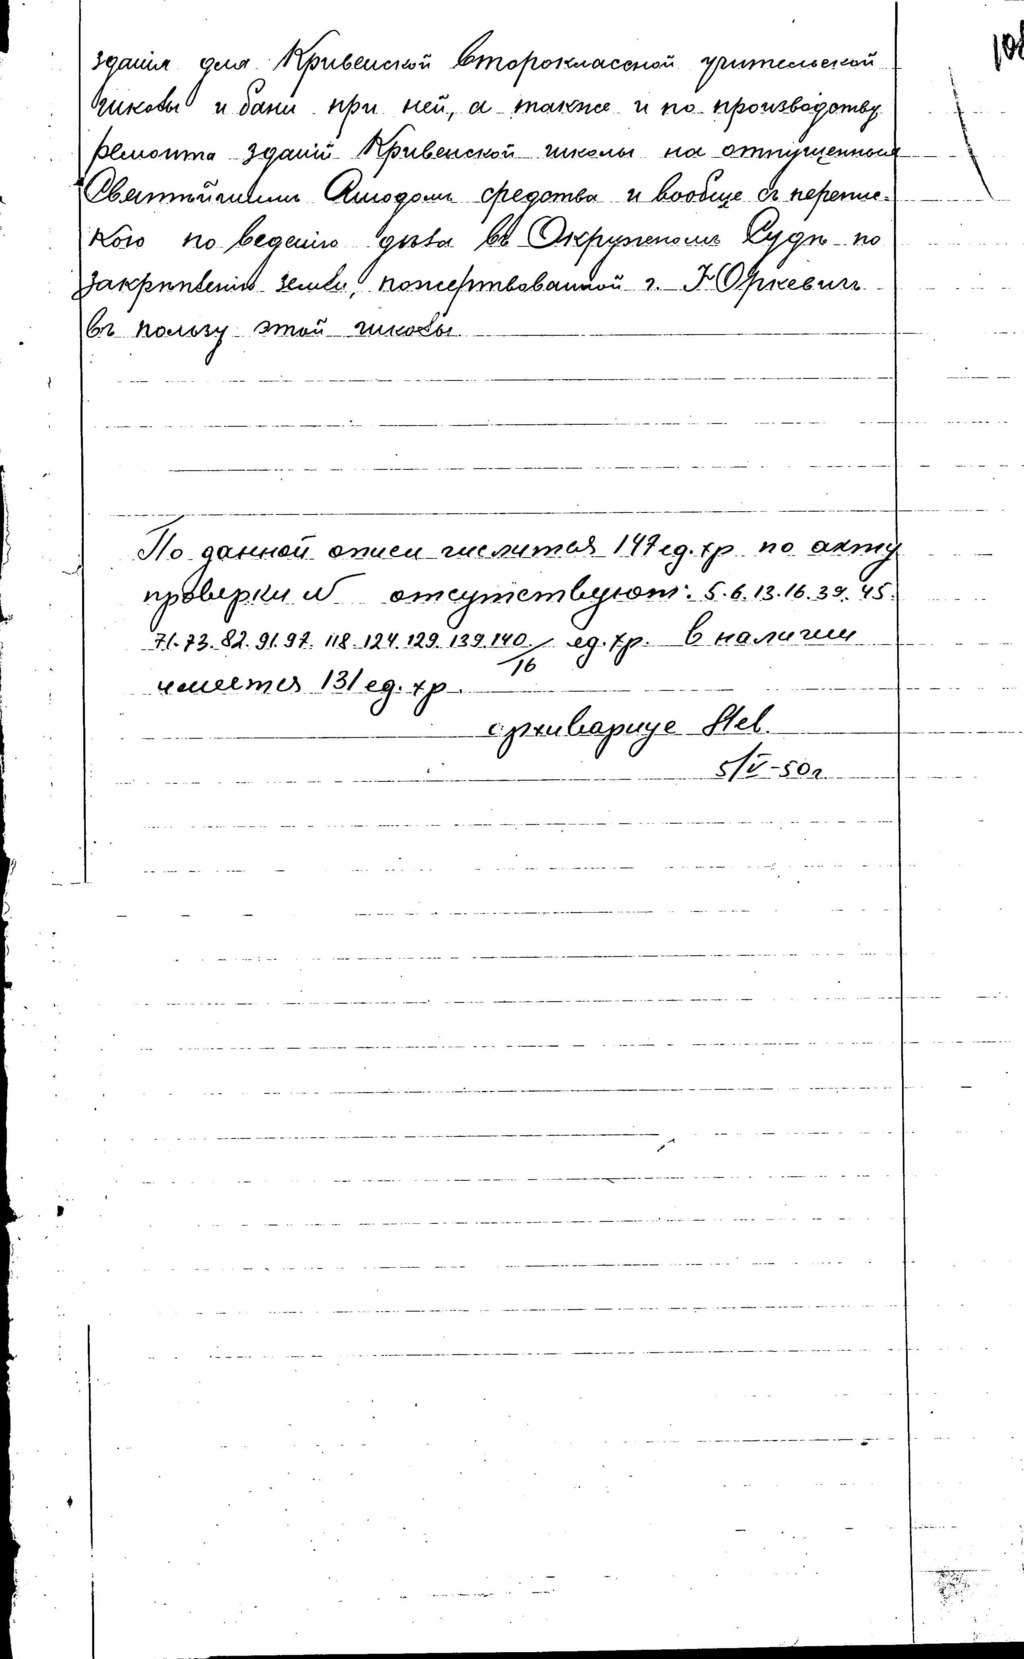 зданія для Кривенской второклассной учительской
школы и бани при ней, а также и по производству
ремонта зданій Кривенской школы на отпущенныя
Святѣйшимъ Синодомъ средства и вообще съ перепис-
кою по веденію дѣла въ Окружномъ Судѣ по
закрѣпленію земли, пожертвованной г. Юркевичъ
въ пользу этой школы
По данной описи числится 147 ед. хр. по акту
проверки № отсутствуют: 5. 6. 13. 16. 39. 45.
71. 73. 82. 91. 97. 118. 124. 129. 139. 140 /16 ед. хр. В наличии
имеется 131 ед. хр.
архивариус
5/V-50 г.